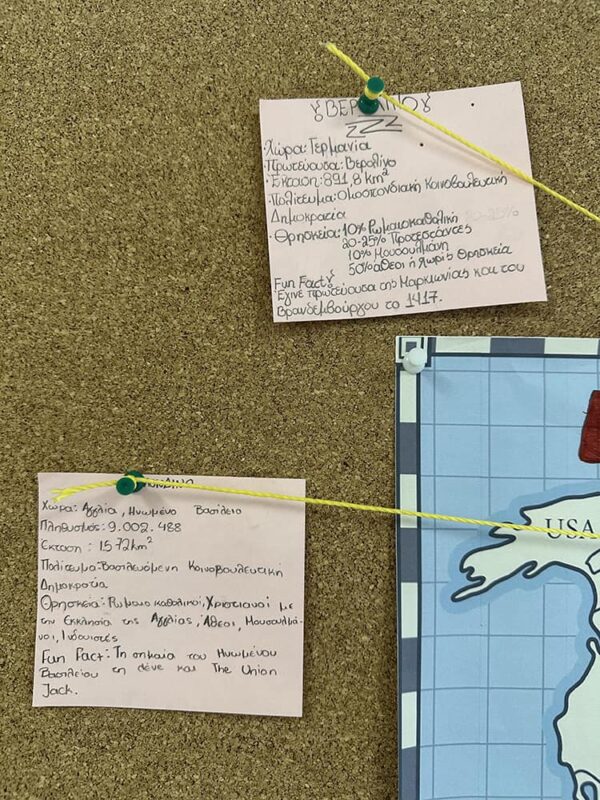 ΒΕΡΟΛΙΝΟ
·Χώρα: Γερμανία
·Πρωτεύουσα: Βερολίνο
·Έκταση: 891,8 km²
·Πολίτευμα: Ομοσπονδιακή Κοινοβουλευτική
Δημοκρατία
·Θρησκεία: 10% Ρωμαιοκαθολική
20-25% Προτεστάντες
10% Μουσουλμάνη
50% άθεοι ή χωρίς θρησκεία
Fun Fact:
Έγινε πρωτεύουσα της Μαρκιωνίας και του
Βρανδεμβούργου το 1417.
ΛΟΝΔΙΝΟ
Χώρα: Αγγλία, Ηνωμένο Βασίλειο
Πληθυσμός: 9.002.488
Έκταση: 1572km²
Πολίτευμα: Βασιλευόμενη Κοινοβουλευτική
Δημοκρατία
Θρησκεία: Ρωμαιοκαθολικοί, Χριστιανοί με
την Εκκλησία της Αγγλίας, Άθεοι, Μουσουλμά-
νοι, Ινδουιστές
Fun Fact: Τη σημαία του Ηνωμένου
Βασιλείου τη λένε και The Union
Jack.
USA